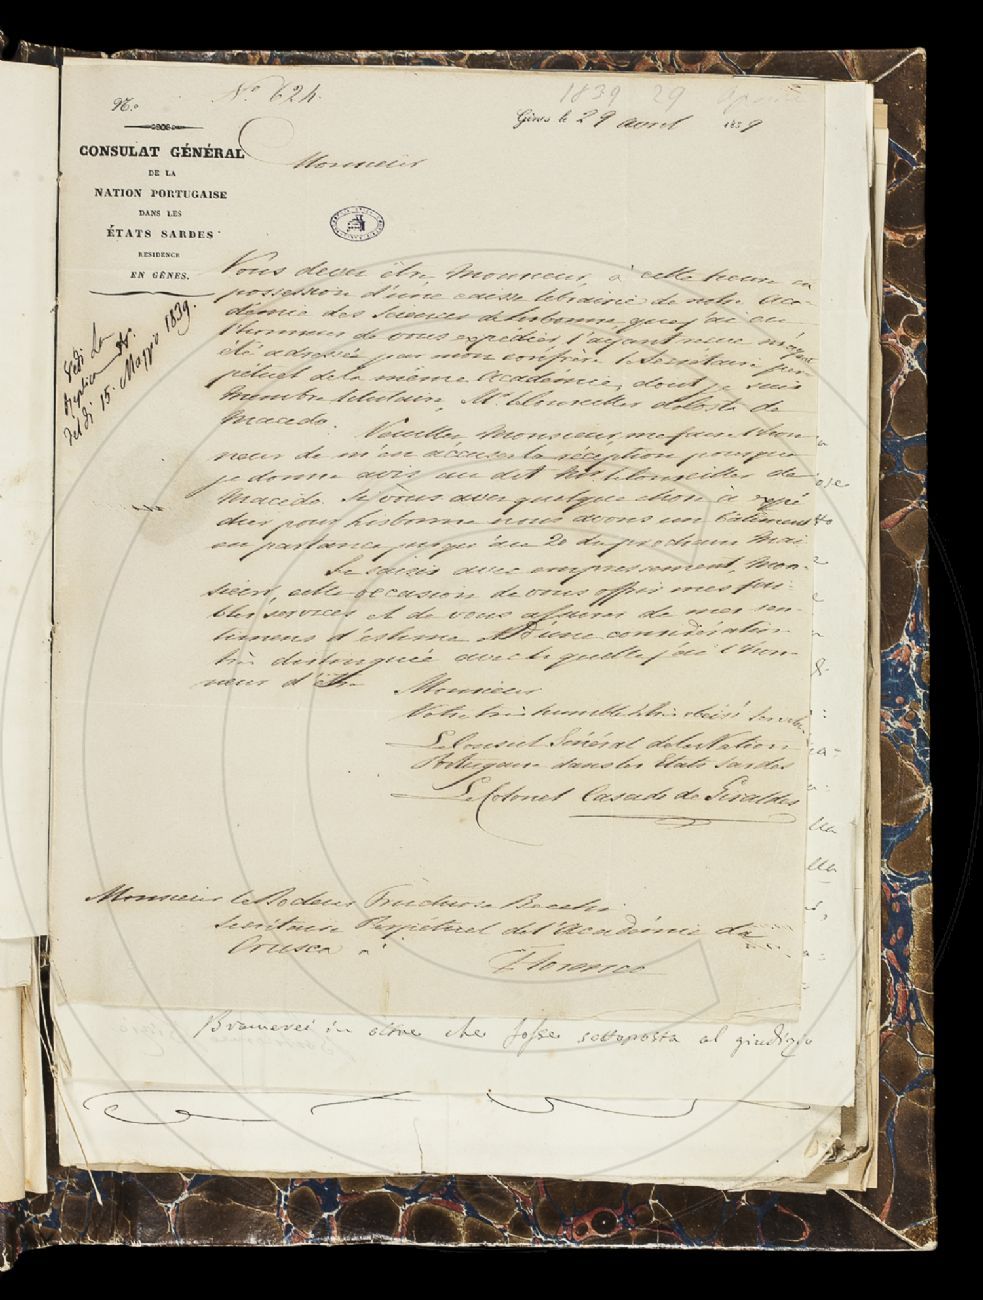 N.o
No 624.
1839 29 Aprile
Gênes le 29 avril 1839
CONSULAT GÉNÉRAL
DE LA
NATION PORTUGAISE
DANS LES
ÉTATS SARDES
RESIDENCE
EN GÊNES.
Monsieur
Vedi La
Replica
del dì 15. Maggio 1839.
Vous devez être, Monsieur, à cette heure en
possession d'une caisse librairie de notre Aca-
démie des Sciences de Lisbonne, que j'ai eu
l'honneur de vous expédier, l'ayant reçue
été adressée par mon confrère le Secrétaire per-
pétuel de la même Académie, dont je suis
membre titulaire, Mr le Conseiller da Costa de
Macedo. Veuillez, Monsieur, me faire l'hon-
neur de m'en accuser la réception pour que
je donne avis au dit Mr Conseiller de
Macedo. Si vous avez quelque chose à expé
dier pour Lisbonne nous avons un bâtiment
en partance jusqu'au 20 du prochain Mai
Je saisis avec empressement, Mon-
sieur, cette occasion de vous offrir mes fai-
bles services et de vous assurer de mes sen-
timens d'estime et d'une considération
très distinguée avec laquelle j'ai l'hon-
neur d'être Monsieur
Votre très humble et très obéist servite
Le Consul Général de la Nation
Portugaise dans les Etats Sardes
Le Colonel Casado de Giraldes
Monsieur le Docteur Fructuoso Becchi
Secrétaire Perpétuel de l'Académie da
Crusca a
Florence
Bramerei in oltre che fosse sottoposta al giudizio